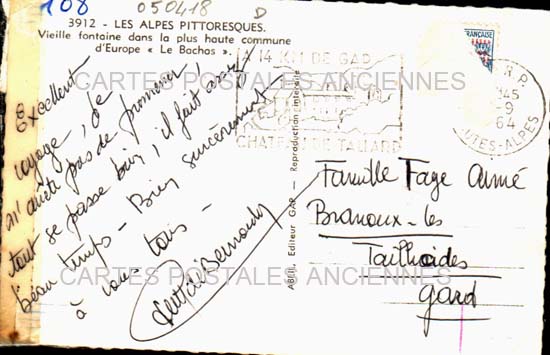 108
050418 D
3912 - LES ALPES PITTORESQUES.
Vieille fontaine dans la plus haute commune
d'Europe « Le Bachas ».
Excellent
voyage, je
m'arrête pas de promener,
tout se passe bien, il fait assez
beau temps - Bien sincèrement
à vous tous -
A 14 KM DE GAP
CHATEAU DE TALLARD
R.P.
-9
64
UTES-ALPES
FRANÇAISE
ABEIL, Editeur GAP - Reproduction interdite
Famille Fage Aimé
Branoux-les
Taillades
Gard
CARTES POSTALES ANCIENNES
CARTES POSTALES ANCIENNES